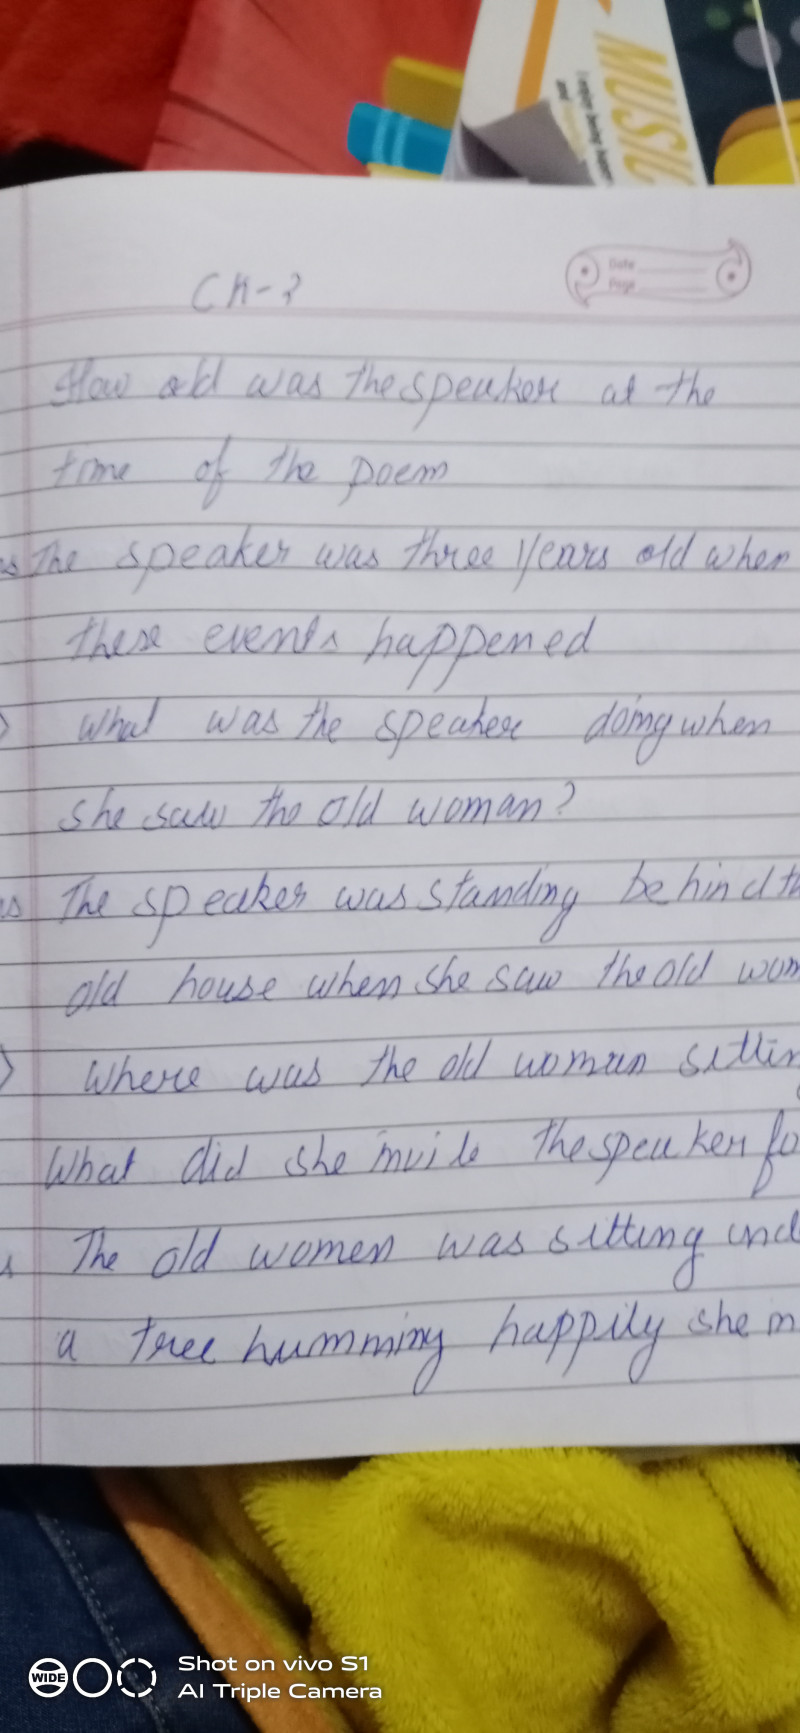 MUSIC
I enjoy being
and
Date
Page
CH-3
How old was the speaker at the
time of the poem
The speaker was three years old when
these events happened
What was the speaker doing when
she saw the old woman?
The speaker was standing behind th
old house when she saw the old wom
Where was the old woman sittin
What did she invite the speaker fo
The old women was sitting und
a tree humming happily she in
WIDE
Shot on vivo S1
AI Triple Camera